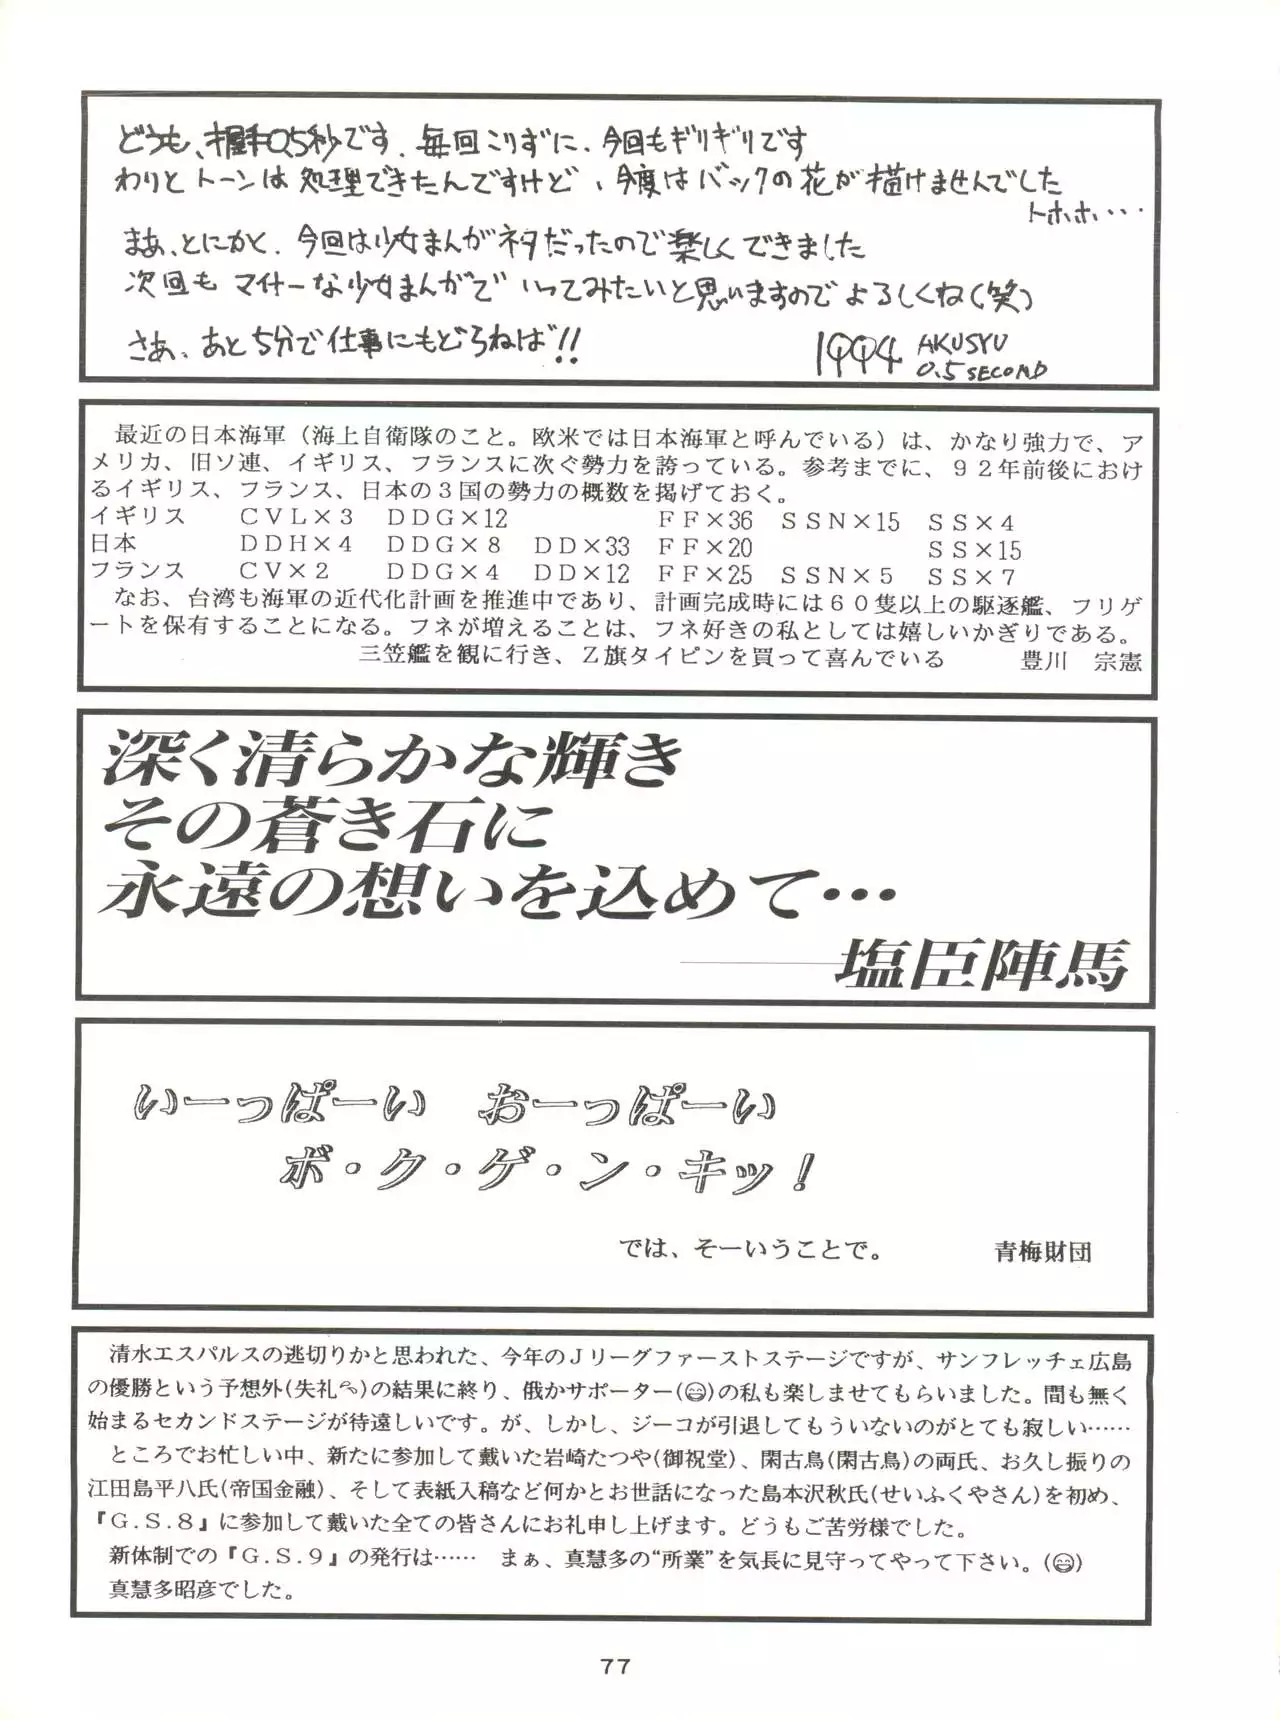 どうも、握手0.5秒です. 毎回こりずに、今回もギリギリです
わりとトーンは処理できたんですけど、今度はバックの花が描けませんでした
トホホ・・・
まあ、とにかく、今回は少女まんがネタだったので楽しくできました
次回も マイナーな少女まんがで いってみたいと思いますのでよろしくね(笑)
さあ、あと5分で仕事にもどらねば!!
1994 AKUSYU
0.5 SECOND
最近の日本海軍（海上自衛隊のこと。欧米では日本海軍と呼んでいる）は、かなり強力で、ア
メリカ、旧ソ連、イギリス、フランスに次ぐ勢力を誇っている。参考までに、９２年前後におけ
るイギリス、フランス、日本の３国の勢力の概数を掲げておく。
イギリス ＣＶＬ×３ ＤＤＧ×12 ＦＦ×36 ＳＳＮ×15 ＳＳ×４
日本 ＤＤＨ×４ ＤＤＧ×８ ＤＤ×33 ＦＦ×20 ＳＳ×15
フランス ＣＶ×２ ＤＤＧ×４ ＤＤ×12 ＦＦ×25 ＳＳＮ×５ ＳＳ×７
なお、台湾も海軍の近代化計画を推進中であり、計画完成時には６０隻以上の駆逐艦、フリゲ
ートを保有することになる。フネが増えることは、フネ好きの私としては嬉しいかぎりである。
三笠艦を観に行き、Ｚ旗タイピンを買って喜んでいる 豊川 宗憲
深く清らかな輝き
その蒼き石に
永遠の想いを込めて…
――塩臣陣馬
いーっぱーい おーっぱーい
ボ・ク・ゲ・ン・キッ！
では、そーいうことで。 青梅財団
清水エスパルスの逃切りかと思われた、今年のＪリーグファーストステージですが、サンフレッチェ広島
の優勝という予想外(失礼)の結果に終り、俄かサポーター(😄)の私も楽しませてもらいました。間も無く
始まるセカンドステージが待遠しいです。が、しかし、ジーコが引退してもういないのがとても寂しい……
ところでお忙しい中、新たに参加して戴いた岩崎たつや(御祝堂)、閑古鳥(閑古鳥)の両氏、お久し振りの
江田島平八氏(帝国金融)、そして表紙入稿など何かとお世話になった島本沢秋氏(せいふくやさん)を初め、
『Ｇ.Ｓ.８』に参加して戴いた全ての皆さんにお礼申し上げます。どうもご苦労様でした。
新体制での『Ｇ.Ｓ.９』の発行は…… まぁ、真慧多の“所業”を気長に見守ってやって下さい。(😄)
真慧多昭彦でした。
77